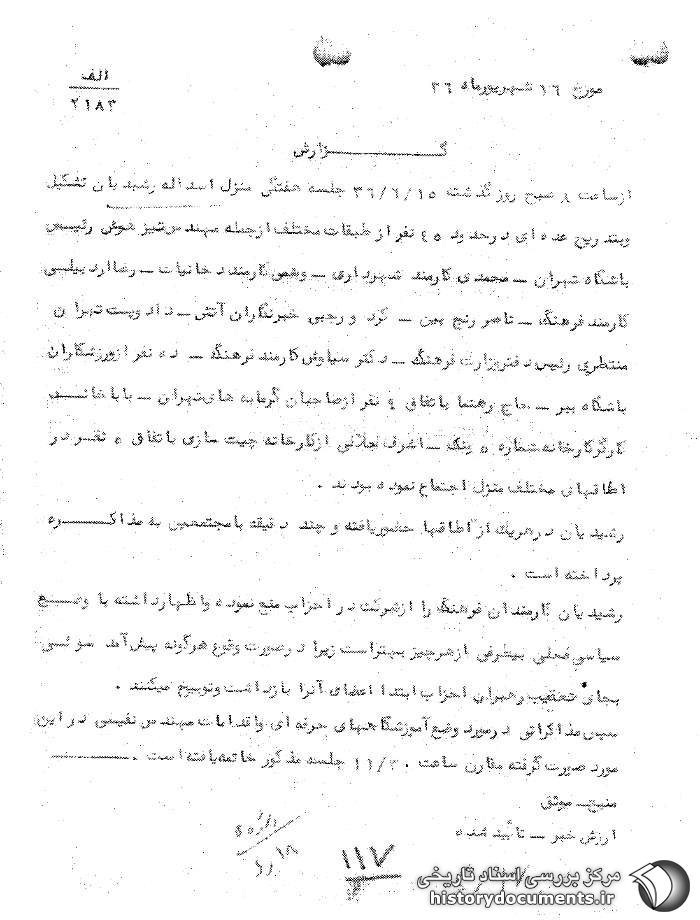 الف
۲۱۸۳
مورخ ۱۶ شهریورماه ۳۶
گزارش
ازساعت ۸ صبح روزگذشته ۳۶/۶/۱۵ جلسه هفتگی منزل اسداله رشیدیان تشکیل
وبتدریج عده ای درحدود ۴۵ نفر از طبقات مختلف ازجمله مهندس تیزهوش رئیس
باشگاه تهران – محمدی کارمند شهرداری – کارمند دخانیات – رضا اردبیلی
کارمند فرهنگ – ناصر رنج بین – کرد و رجبی خبرنگاران آتش – داد وبست تهران
منتظری رئیس دفتر وزارت فرهنگ – دکتر سیاوش کارمند فرهنگ – ده نفر ازورزشکاران
باشگاه ببر – حاج رهنما باتفاق ۴ نفر ازصاحبان گرمابه های تهران – باباخانی
کارگرکارخانه شماره ۵ – اشرف جلالی ازکارخانه چیت سازی باتفاق ۵ نفر در
اطاقهای مختلف منزل اجتماع نموده بودند .
رشیدیان درهریک از اطاقها حضوریافته و چند دقیقه بامجتمعین به مذاکره
پرداخته است .
رشیدیان کارمندان فرهنگ را ازشرکت در احزاب منع نموده واظهارداشته با وضع
سیاسی فعلی بیطرفی ازهرچیز بهتراست زیرا درصورت وقوع هرگونه پیش آمد سوئی
بجای تعقیب رهبران احزاب ابتدا اعضای آنرا بازداشت وتوبیخ میکنند .
سپس مذاکراتی درمورد وضع آموزشگاههای حرفه ای واقدامات مهندس نفیسی در این
مورد صورت گرفته مقارن ساعت ۱۱/۳۰ جلسه مذکور خاتمه یافته است .
منبع – موثق
ارزش خبر – تائید شده
۱۱۷
مرکز بررسی اسناد تاریخی
historydocuments.ir